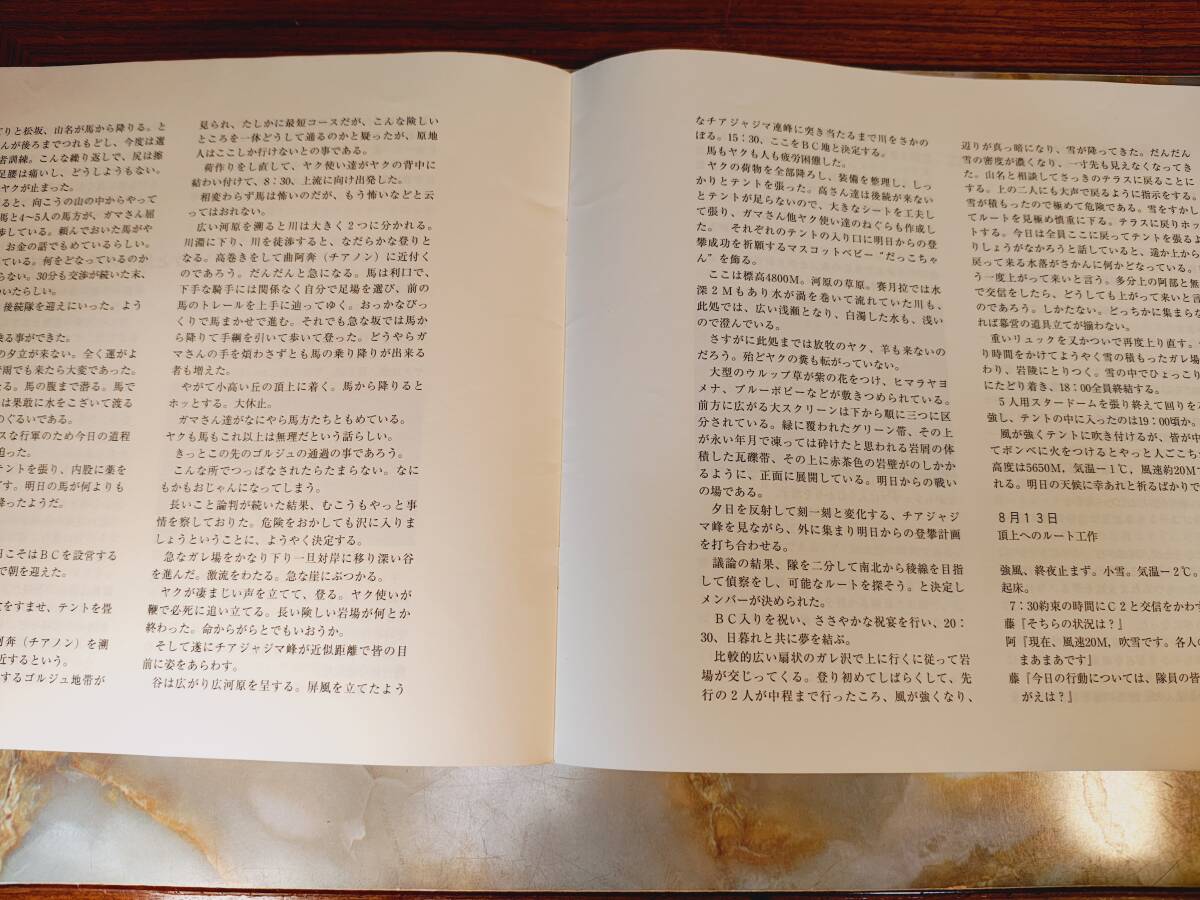 りと松坂、山名が馬から降りる。と
んが後ろまでつれもどし、今度は選
者訓練。こんな繰り返しで、尻は擦
足腰は痛いし、どうしようもない。
ヤクが止まった。
ると、向こうの山の中からやって
馬と4~5人の馬方が、ガマさん屈
歩している。頼んでおいた馬がや
お金の話でもめているらしい。
ている。何をどなっているのか
らない。30分も交渉が続いた末、
いたらしい。
後続隊を迎えにいった。よう
乗る事ができた。
の夕立が来ない。全く運がよ
雷雨でも来たら大変であった。
たる。馬の腹まで潜る。馬で
は果敢に水をこざいて渡る
のぐるいである。
スな行軍のため今日の道程
迫った。
テントを張り、内股に薬を
です。明日の馬が何よりも
降ったようだ。
日こそはBCを設営する
で朝を迎えた。
食をすませ、テントを畳
阿奔(チアノン)を溯
近するという。
するゴルジュ地帯が
見られ、たしかに最短コースだが、こんな険しい
ところを一体どうして通るのかと疑ったが、原地
人はここしか行けないとの事である。
荷作りをし直して、ヤク使い達がヤクの背中に
結わい付けて、8:30、上流に向け出発した。
相変わらず馬は怖いのだが、もう怖いなどと云
ってはおれない。
広い河原を溯ると川は大きく2つに分かれる。
川淵に下り、川を徒渉すると、なだらかな登りと
なる。高巻きをして曲阿奔(チアノン)に近付く
のであろう。だんだんと急になる。馬は利口で、
下手な騎手には関係なく自分で足場を選び、前の
馬のトレールを上手に辿ってゆく。おっかなびっ
くりで馬まかせで進む。それでも急な坂では馬か
ら降りて手綱を引いて歩いて登った。どうやらガ
マさんの手を煩わさずとも馬の乗り降りが出来る
者も増えた。
やがて小高い丘の頂上に着く。馬から降りると
ホッとする。大休止。
ガマさん達がなにやら馬方たちともめている。
ヤクも馬もこれ以上は無理だという話らしい。
きっとこの先のゴルジュの通過の事であろう。
こんな所でつっぱなされたらたまらない。なに
もかもおじゃんになってしまう。
長いこと論判が続いた結果、むこうもやっと事
情を察しておりた。危険をおかしても沢に入りま
しょうということに、ようやく決定する。
急なガレ場をかなり下り一旦対岸に移り深い谷
を進んだ。激流をわたる。急な崖にぶつかる。
ヤクが凄まじい声を立てて、登る。ヤク使いが
鞭で必死に追い立てる。長い険しい岩場が何とか
終わった。命からがらとでもいおうか。
そして遂にチアジャジマ峰が近似距離で皆の目
前に姿をあらわす。
谷は広がり広河原を呈する。屏風を立てたよう
なチアジャジマ連峰に突き当たるまで川をさかの
ぼる。15:30、ここをBC地と決定する。
馬もヤクも人も疲労困憊した。
ヤクの荷物を全部降ろし、装備を整理し、しっ
かりとテントを張った。高さん達は後続が来ない
とテントが足らないので、大きなシートを工夫し
て張り、ガマさん他ヤク使い達のねぐらも作成し
た。 それぞれのテントの入り口に明日からの登
攀成功を祈願するマスコットベビー“だっこちゃ
ん”を飾る。
ここは標高4800M。河原の草原。賽月拉では水
深2Mもあり水が渦を巻いて流れていた川も、
此処では、広い浅瀬となり、白濁した水も、浅い
ので澄んでいる。
さすがに此処までは放牧のヤク、羊も来ないの
だろう。殆どヤクの糞も転がっていない。
大型のウルップ草が紫の花をつけ、ヒマラヤヨ
メナ、ブルーポピーなどが敷きつめられている。
前方に広がる大スクリーンは下から順に三つに区
分されている。緑に被われたグリーン帯、その上
が永い年月で凍っては砕けたと思われる岩屑の体
積した瓦礫帯、その上に赤茶色の岩壁がのしかか
るように、正面に展開している。明日からの戦い
の場である。
夕日を反射して刻一刻と変化する、チアジャジ
マ峰を見ながら、外に集まり明日からの登攀計画
を打ち合わせる。
議論の結果、隊を二分して南北から稜線を目指
して偵察をし、可能なルートを探そう。と決定し
メンバーが決められた。
BC入りを祝い、ささやかな祝宴を行い、20:
30、日暮れと共に夢を結ぶ。
比較的広い扇状のガレ沢で上に行くに従って岩
場が交じってくる。登り初めてしばらくして、先
行の2人が中程まで行ったころ、風が強くなり、
辺りが真っ暗になり、雪が降ってきた。だんだん
雪の密度が濃くなり、一寸先も見えなくなってき
た。山名と相談してさっきのテラスに戻ることに
する。上の二人にも大声で戻るように指示をする。
雪が積もったので極めて危険である。雪をすかし
てルートを見極め慎重に下る。テラスに戻りホッ
トする。今日は全員ここに戻ってテントを張るよ
りしょうがなかろうと話していると、遥か上から
戻って来る水落がさかんに何かどなっている。
う一度上がって来いと言う。多分上の阿部と無
で交信をしたら、どうしても上がって来いと言
のであろう。しかたない。どっちかに集まらな
れば幕営の道具立てが揃わない。
重いリュックを又かついで再度上り直す。
り時間をかけてようやく雪の積もったガレ場
わり、岩陵にとりつく。雪の中でひょっこり
にたどり着き、18:00全員終結する。
5人用スタードームを張り終えて回りを
強し、テントの中に入ったのは19:00頃か。
風が強くテントに吹き付けるが、皆が中
てボンベに火をつけるとやっと人ごこち
高度は5650M、気温ー1℃、風速約20M
れる。明日の天候に幸あれと祈るばかりで
8月13日
頂上へのルート工作
強風、終夜止まず。小雪。気温ー2℃。
起床。
7:30約束の時間にC2と交信をかわす
藤『そちらの状況は?』
阿『現在、風速20M、吹雪です。各人の
まあまあです』
藤『今日の行動については、隊員の皆
がえは?』